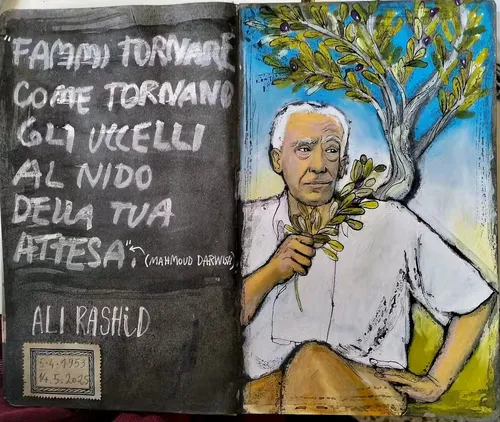 "FAMMI TORNARE
COME TORNANO
GLI UCCELLI
AL NIDO
DELLA TUA
ATTESA".
(MAHMOUD DARWISH)
ALI RASHID
5.4.1953
14.5.2025